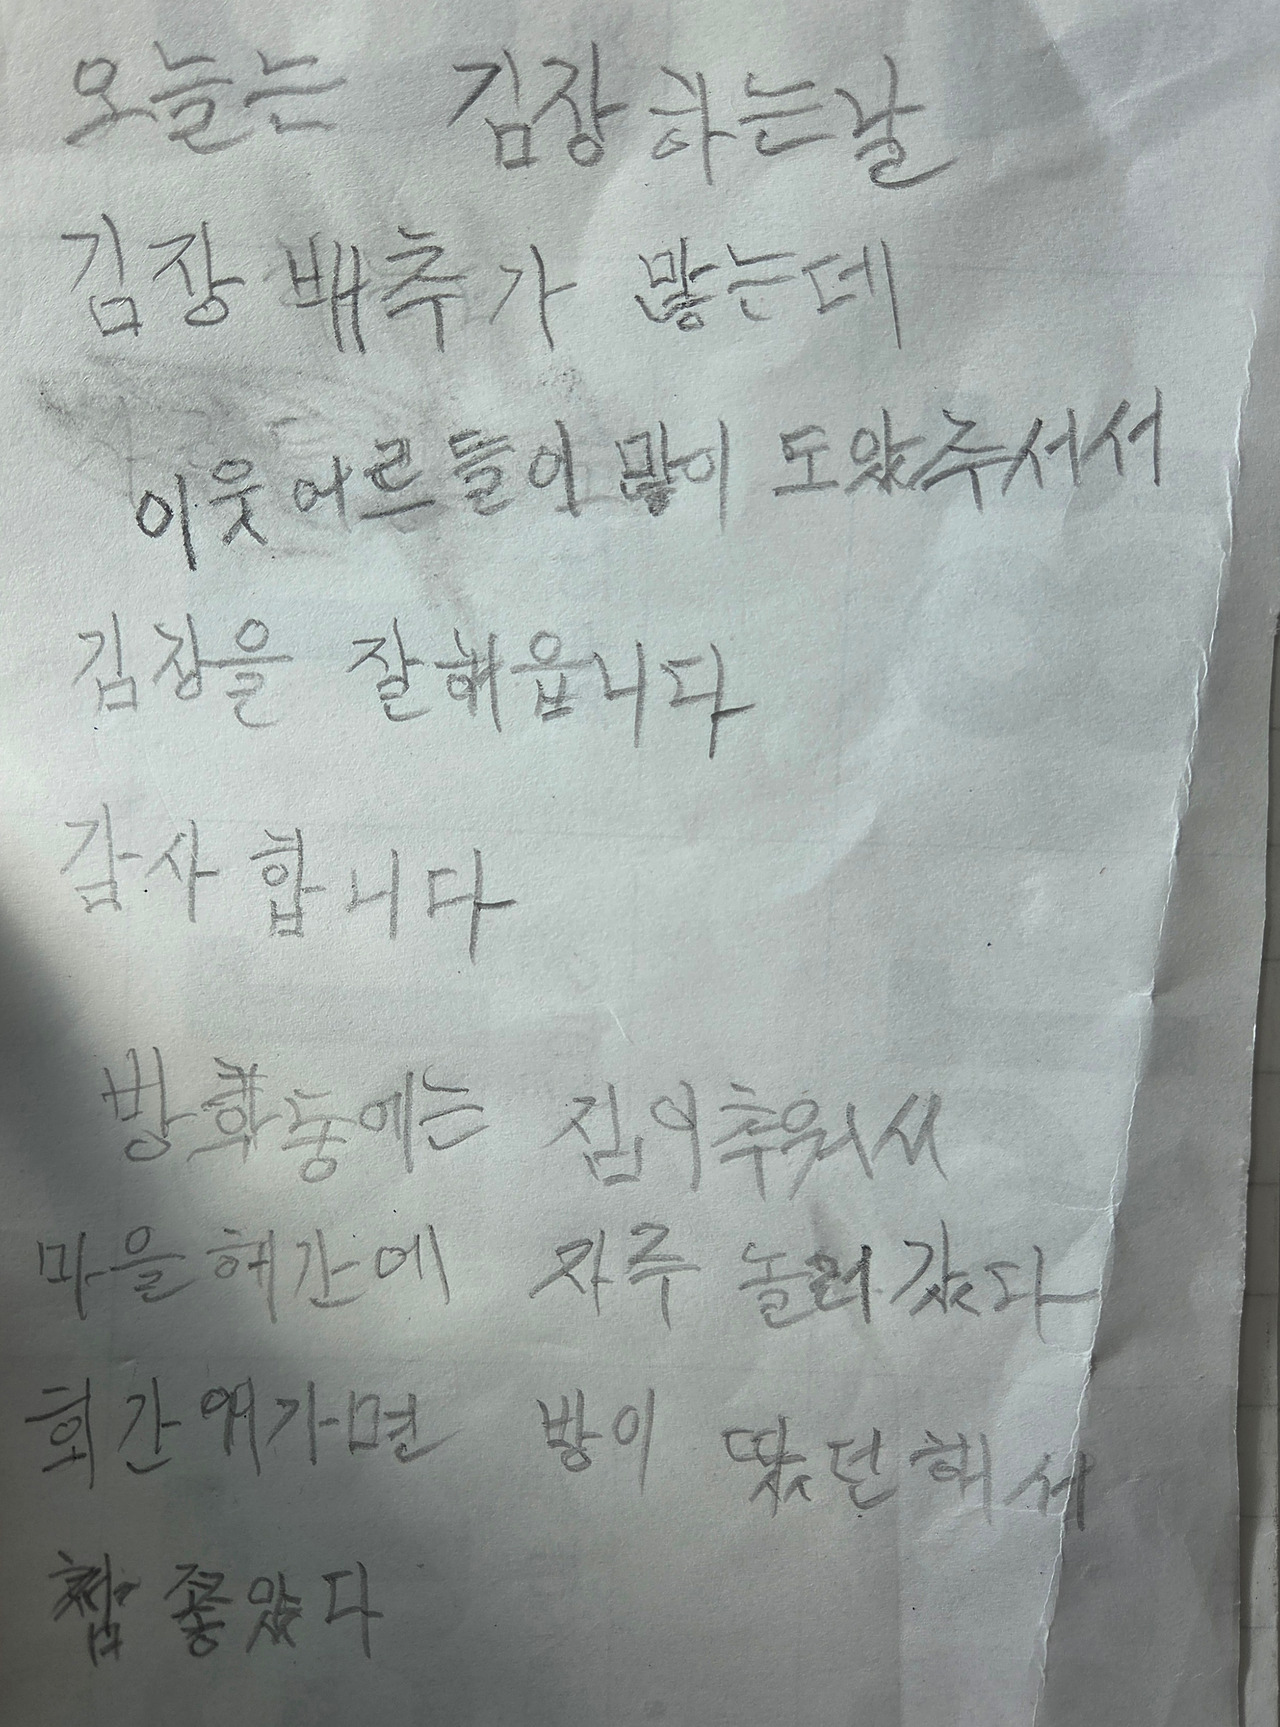 오늘는 김장하는날
김장배추가 많는데
이웃어르들이 많이 도았주서서
김장을 잘해읍니다
감사합니다
방학중에는 집이추워서
마을해간에 자주 놀러갔다
회간에가면 방이 땄던해서
참 좋았다